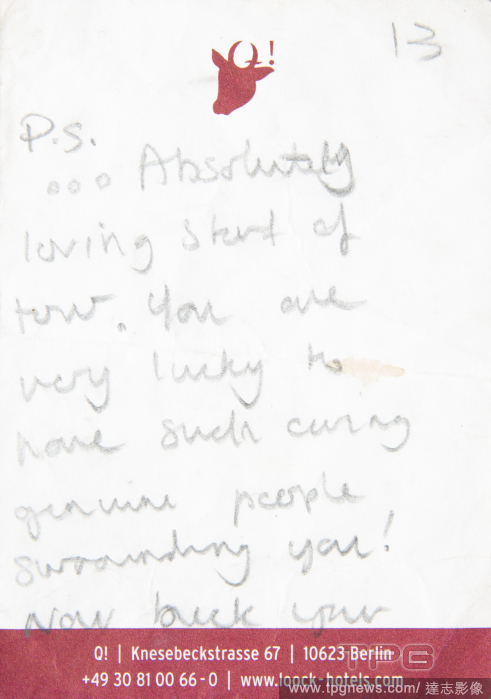 Q!
13
P.S.
... Absolutely
loving start of
tour. You are
very lucky to
have such caring
genuine people
surrounding you!
Now back your
Q! | Knesebeckstrasse 67 | 10623 Berlin
+49 30 81 00 66-0 | www.loock-hotels.com
TPG
www.tpgnews.com/ 達志影像